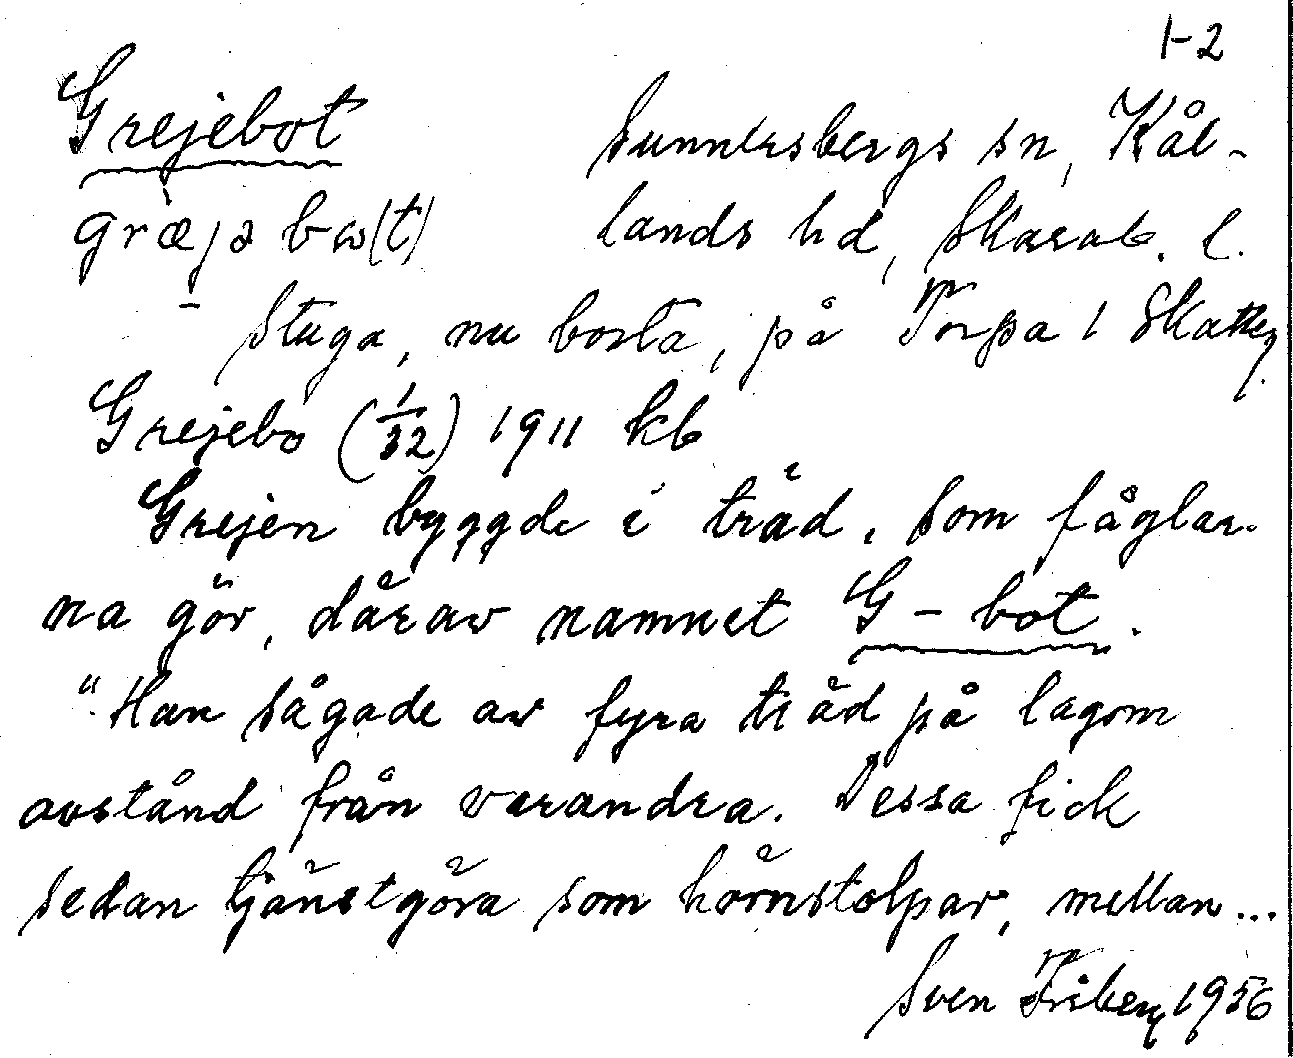 1-2
Grejebot
Sunnersbergs sn, Kål-
græjə bω(t)
lands hd, Skarab. l.
- Stuga, nu borta, på Torpa 1 Skatteg.
Grejebo (1/32) 1911 kb
Grejen byggde i träd, som fåglar-
na gör, därav namnet G-bot.
"Han sågade av fyra träd på lagom
avstånd från varandra. Dessa fick
sedan tjänstgöra som hörnstolpar, mellan...
Sven Friberg 1956